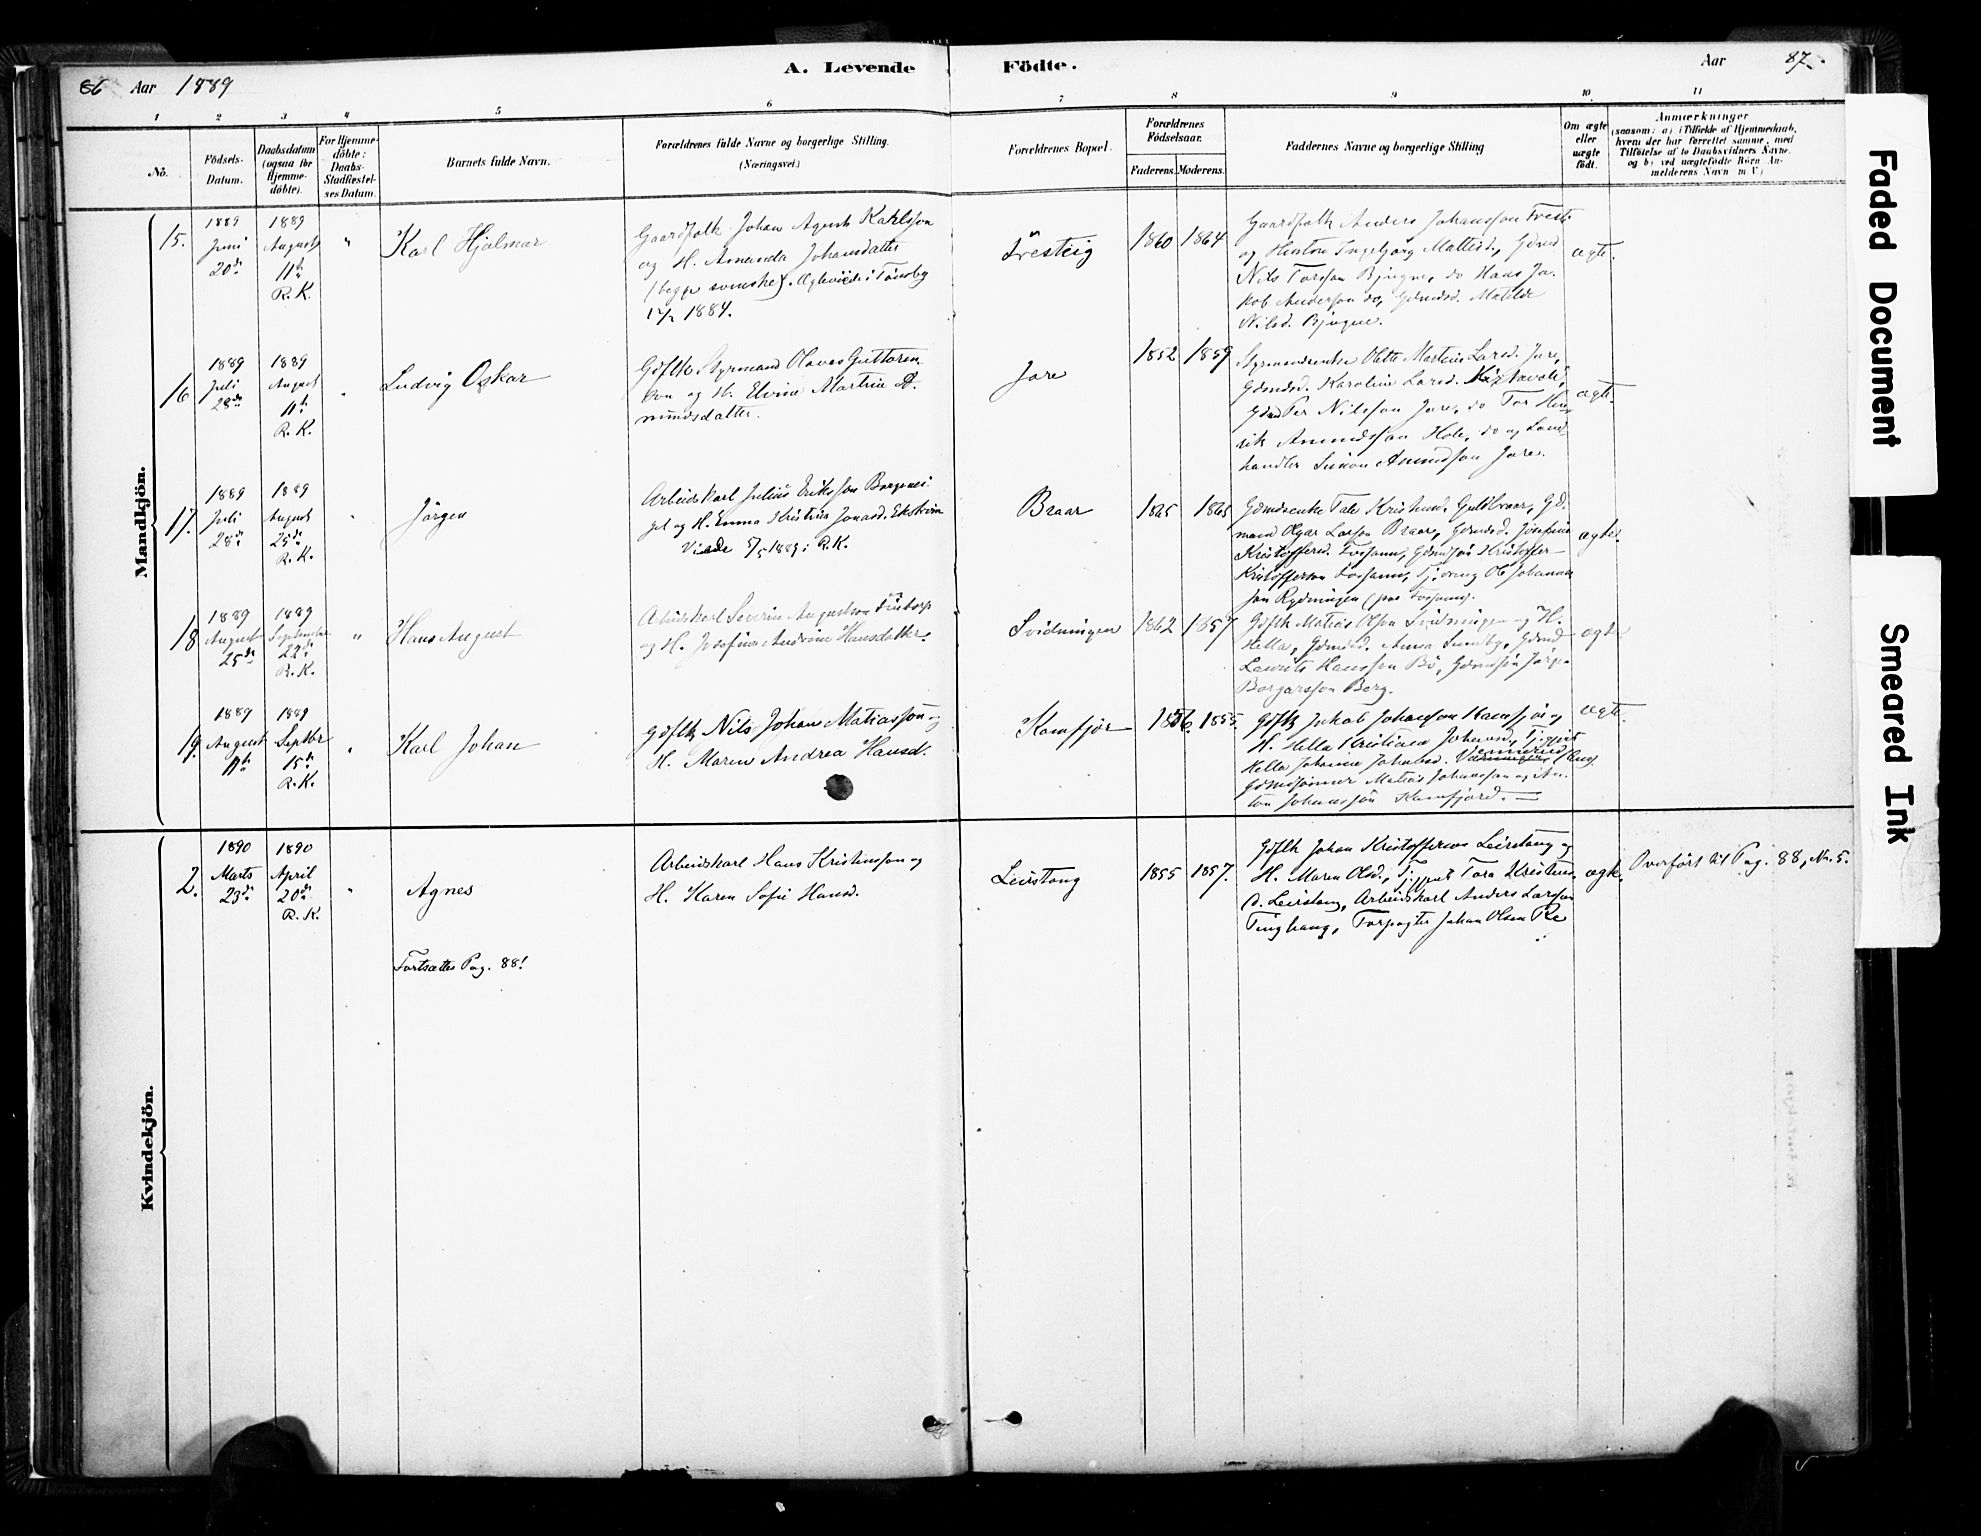 86 Aar 1889
A. Levende Födte.
Aar 87.
1 2 3 4 5 6 7 8 9 10 11
No.
Födsels-
Datum.
Daabsdatum
(ogsaa for
Hjemme-
döbte).
For Hjemme-
döbte:
Daabs-
Stadfæstel-
ses Datum.
Barnets fulde Navn.
Forældrenes fulde Navne og borgerlige Stilling.
(Næringsvei.)
Forældrenes Bopæl.
Forældrenes
Födselsaar.
Faderens. Moderens.
Faddernes Navne og borgerlige Stilling
Om ægte
eller
uægte
födt.
Anmærkninger
(saasom: a) i Tilfælde af Hjemmedaab,
hvem der har forrettet samme, med
Tilföielse af to Daabsvidners Navne.
og b) ved uægtefödte Börn An-
melderens Navn m. V.)
Mandkjön.
15.
1889
Juni
20de
1889
August
11te
R. K.
"
Karl Hjalmar
Gaardfolk Johan Agust Karlsson
og H. Amanda Johansdatter
(begge svenske). Ægteviede i Tönsberg
1884.
1860 1864
Gaardfolk Anders Johansson
og Hustru Ingeborg
Nils Torsson Bjugne, do Hans Ja-
kob Anderson do, Gdmdsd. Matilde
Nilsd. Bjugne.
ægte.
16
1889
Juli
23de
1889
August
11te
R. K.
"
Ludvig Oskar
Gdflk Styrmand Olaves Guttorm-
son og H. Elvine Martine A-
mundsdatter.
Jare
1852 1859
Styrmandsenke Olette Martine Larsd. Jare,
Gdmdsd. Karoline Larsd.
Gdmd Per Nilsson Jare, do Tor Hen-
rik Amundsson Hole, do og Land-
handler Simon Amundson Jare.
ægte.
17.
1889
Juli
28de
1889
August
25de
R. K.
"
Jörgen
Arbeidskarl Julius Eriksson
og H. Emma Kristina Jonasd. Ekström
Viede 5/5 1889 i R. K.
Braar
1865 1865
Gdmdsenke Tale Kristensd. Guldbraar, Gd-
mand Olgar Larson Braar, Gdmdsd. Josefine
Kristoffersd. Fossum, Gdmdsön Kristoffer
Kristofferson Fossum, Tj.dreng Ole Johannes-
son Rydningen (paa Fossum).
ægte.
18
1889
August
25de
1889
September
22de
R. K.
"
Hans August
Arbeidskarl Severin Augustson
og H. Josefine Andrine Hansdatter.
Svidningen
1862 1857
Gdflk Matias Olson Svidningen og H.
Hella, Gdmdsd. Anna Sundby, Gdmd
Laurits Hansson Bö, Gdmdsön Jörgen
Borgarsson Berg.
ægte
19.
1889
August
11te
1889
Septbr
15de
R. K.
"
Karl Johan
Gdflk Nils Johan Matiasson og
H. Maren Andrea Hansd.
Kamfjor
1856. 1855.
Gdflk Jakob Johanson Kamfjor og
H. Hella Kristiane Johansd., Tj.pige
Hella Johanne Johnsd.
Gdmdsönner Matias Johansson og An-
ton Johansson Kamfjord.
ægte.
Kvindekjön.
2.
1890
Marts
23de
1890
April
20de
R. K.
"
Agnes
Arbeidskarl Hans Kristensson og
H. Karen Sofie Hansd.
Leirstang
1855 1857.
Gdflk Johan Kristofferson Leirstang og
H. Maren Olsd., Tj.pige Tora Kristens-
d. Leirstang, Arbeidskarl Anders Larsson
Tinghaug, Forpagter Johan Olsen Re
ægte.
Overfört til Pag. 88, Nr. 5.
Fortsættes Pag. 88!
Faded Document
Smeared Ink